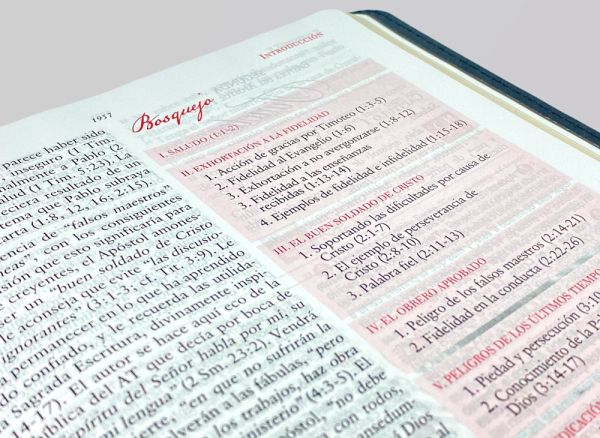 INTRODUCCIÓN
1937
parece haber sido
inseguro (1 Tim.
nalmente a Pablo (2
alla (1 Tim. 5:23). La
reciera resultado de un
tema que Pablo subraya
carta (1:8, 12, 16; 2:15).
encia de "falsos maestro"
eas", con los consiguientes
sión que esto significaría para
creyentes, el Apóstol Timoteo
un "buen soldado de Cristo",
Le aconseja que evite las discusio-
ignorantes" (3:1-3; cf. Tit. 3:9). Le
a permanecer en lo que ha aprendido
confiado, y le recuerda las utilida-
a Sagrada Escritura, divinamente inspi-
14-17). El autor se hace aquí eco de la
ública del AT que decía por boca de
Espíritu del Señor habla por mí, su
mi lengua" (2 Sm. 23:2). Vendrá
, "en que no sufrirán la
lverán a las fábulas, "pero
los trabajos, haz obra
ministerio" (4:3-5). El
óstol, no debe
con todos,
Dios
Bosquejo
I. SALUDO (1:1-2)
II. EXHORTACIÓN A LA FIDELIDAD
1. Acción de gracias por Timoteo (1:3-5)
2. Fidelidad al Evangelio (1:6)
3. Exhortación a no avergonzarse (1:8-12)
3. Fidelidad a las enseñanzas
recibidas (1:13-14)
4. Ejemplos de fidelidad e infidelidad (1:15-18)
III. EL BUEN SOLDADO DE CRISTO
1. Soportando las dificultades por causa de
Cristo (2:1-7)
2. El ejemplo de perseverancia de
Cristo (2:8-10)
3. Palabra fiel (2:11-13)
IV. EL OBRERO APROBADO
1. Peligro de los falsos maestros (2:14-21)
2. Fidelidad en la conducta (2:22-26)
V. PELIGROS DE LOS ÚLTIMOS TIEMPO
1. Piedad y persecución (3:10
2. Conocimiento de la Pa
Dios (3:14-17)
DICACIÓN